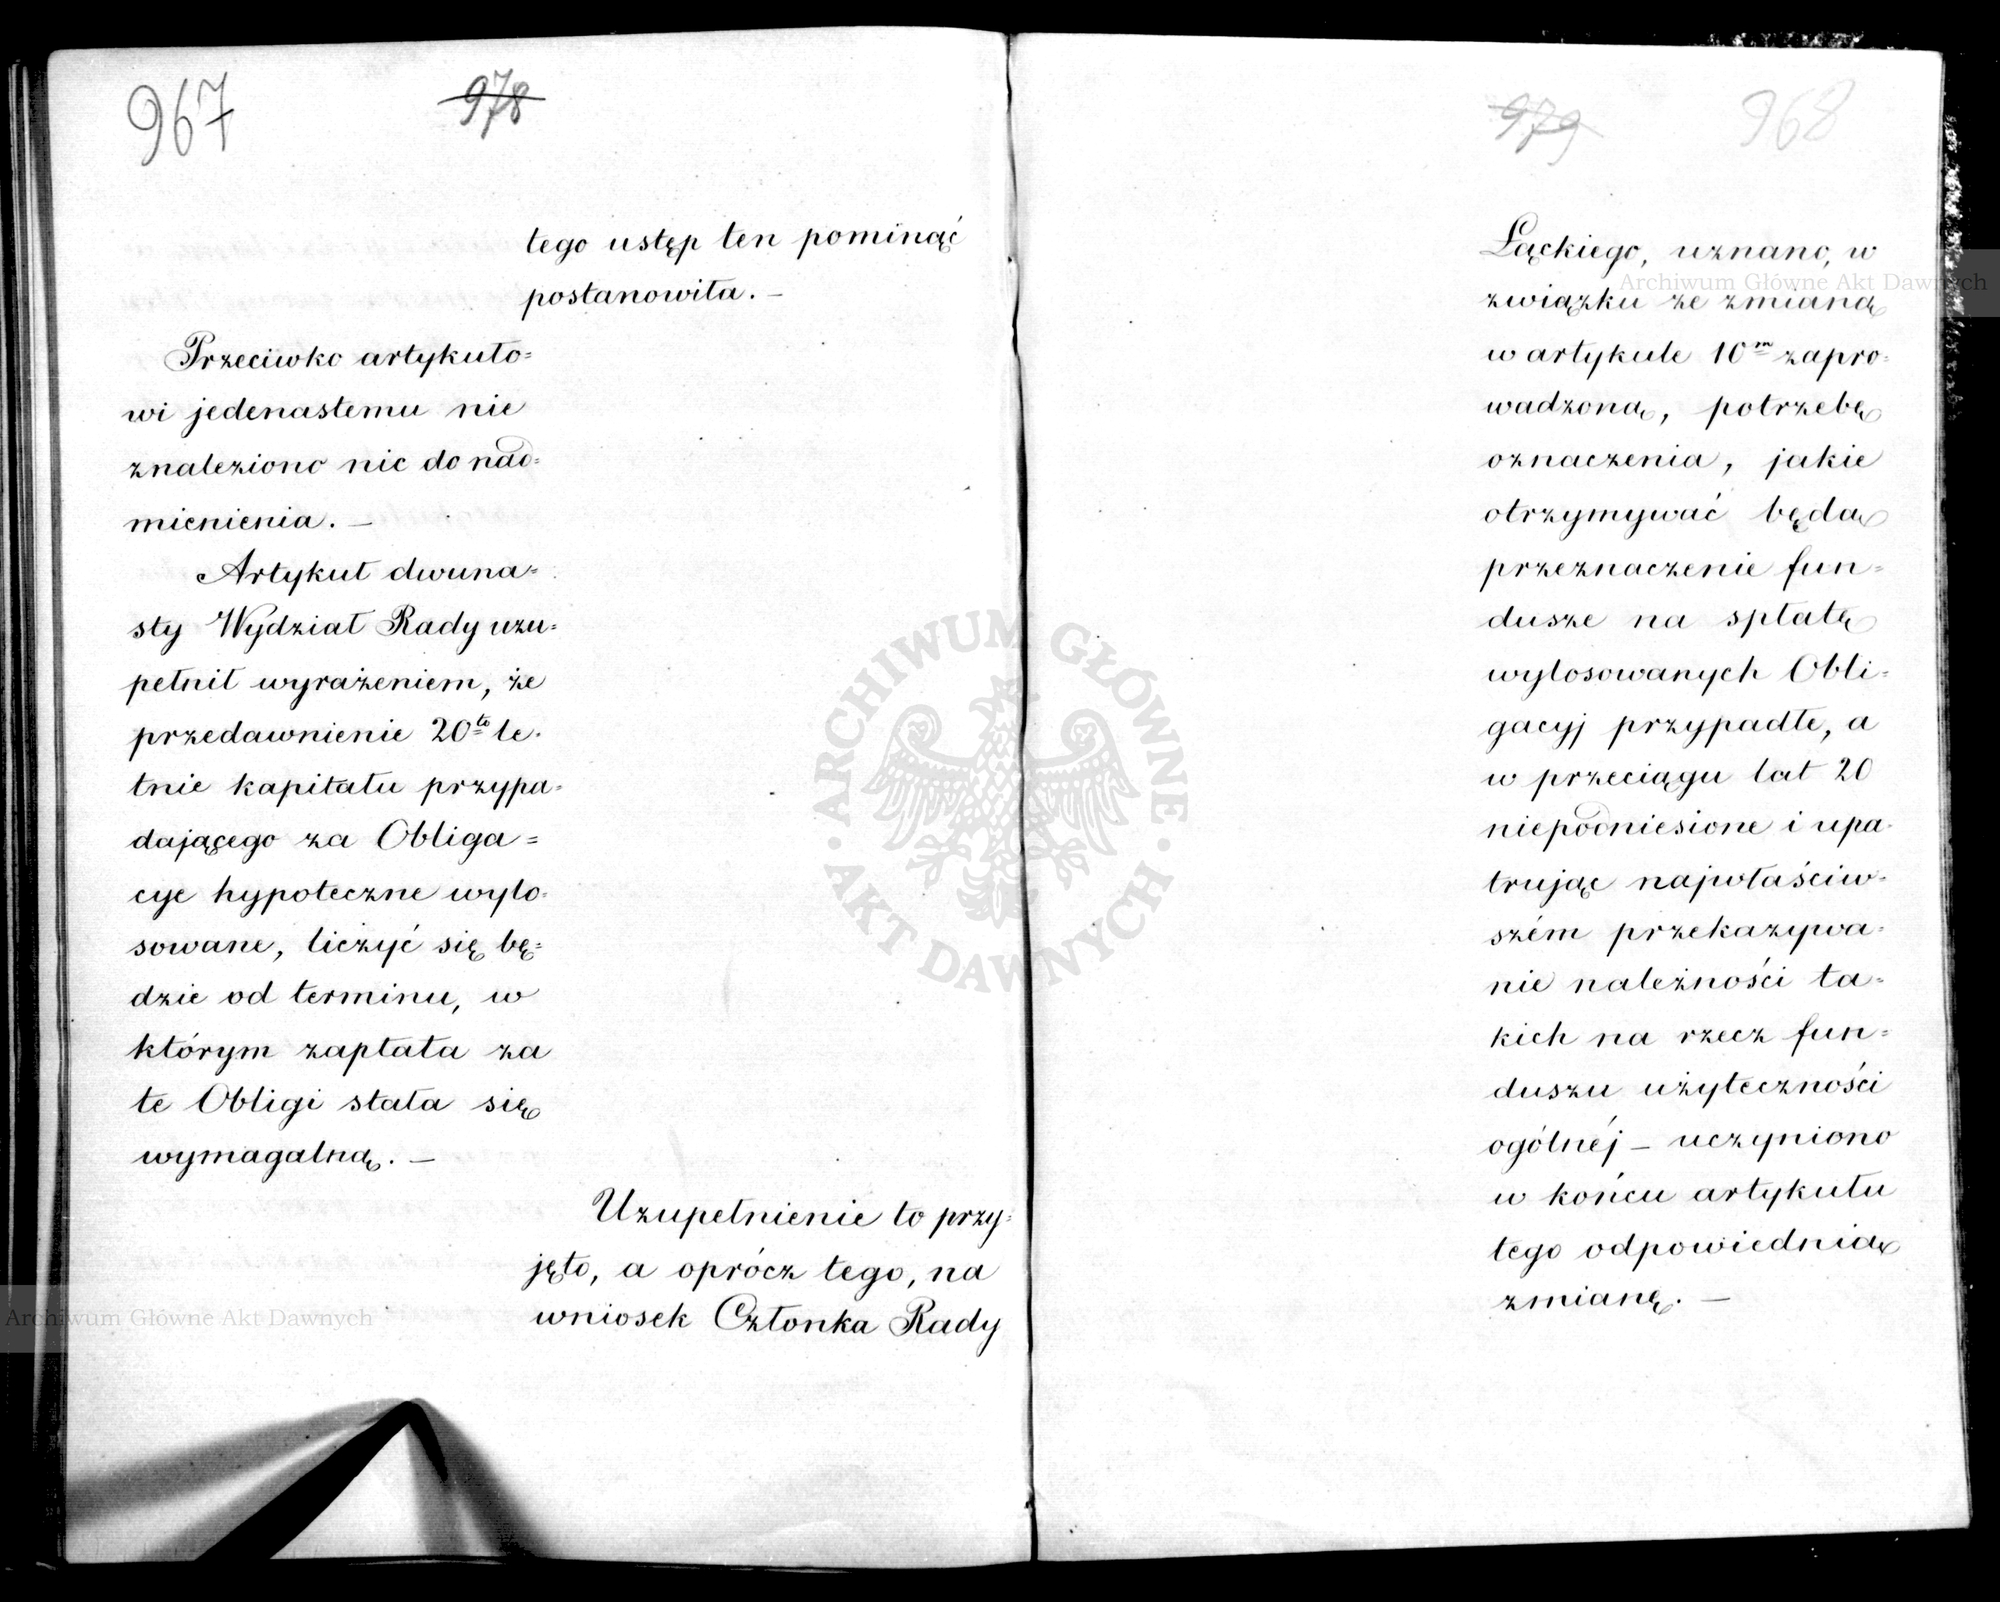 967
978
tego ustęp ten pominąć
postanowiła. –
Przeciwko artykuło=
wi jedenastemu nie
znaleziono nic do nad=
mienienia. –
Artykuł dwuna=
sty Wydział Rady uzu=
pełnił wyrażeniem, że
przedawnienie 20to le=
tnie kapitału przypa=
dającego za Obliga=
cye hypoteczne wylo=
sowane, liczyć się bę=
dzie od terminu, w
którym zapłata za
te Obligi stała się
wymagalną. –
Uzupełnienie to przy=
jęto, a oprócz tego, na
wniosek Członka Rady
979
968
Łąckiego, uznano, w
związku ze zmianą
w artykule 10m zapro=
wadzoną, potrzebę
oznaczenia, jakie
otrzymywać będą
przeznaczenie fun=
dusze na spłatę
wylosowanych Obli=
gacyj przypadłe, a
w przeciągu lat 20
niepodniesione i upa=
trując najwłaściw=
szém przekazywa=
nie należności ta=
kich na rzecz fun=
duszu użyteczności
ogólnéj – uczyniono
w końcu artykułu
tego odpowiednią
zmianę. –
Archiwum Główne Akt Dawnych
ARCHIWUM GŁÓWNE
AKT DAWNYCH
Archiwum Główne Akt Dawnych